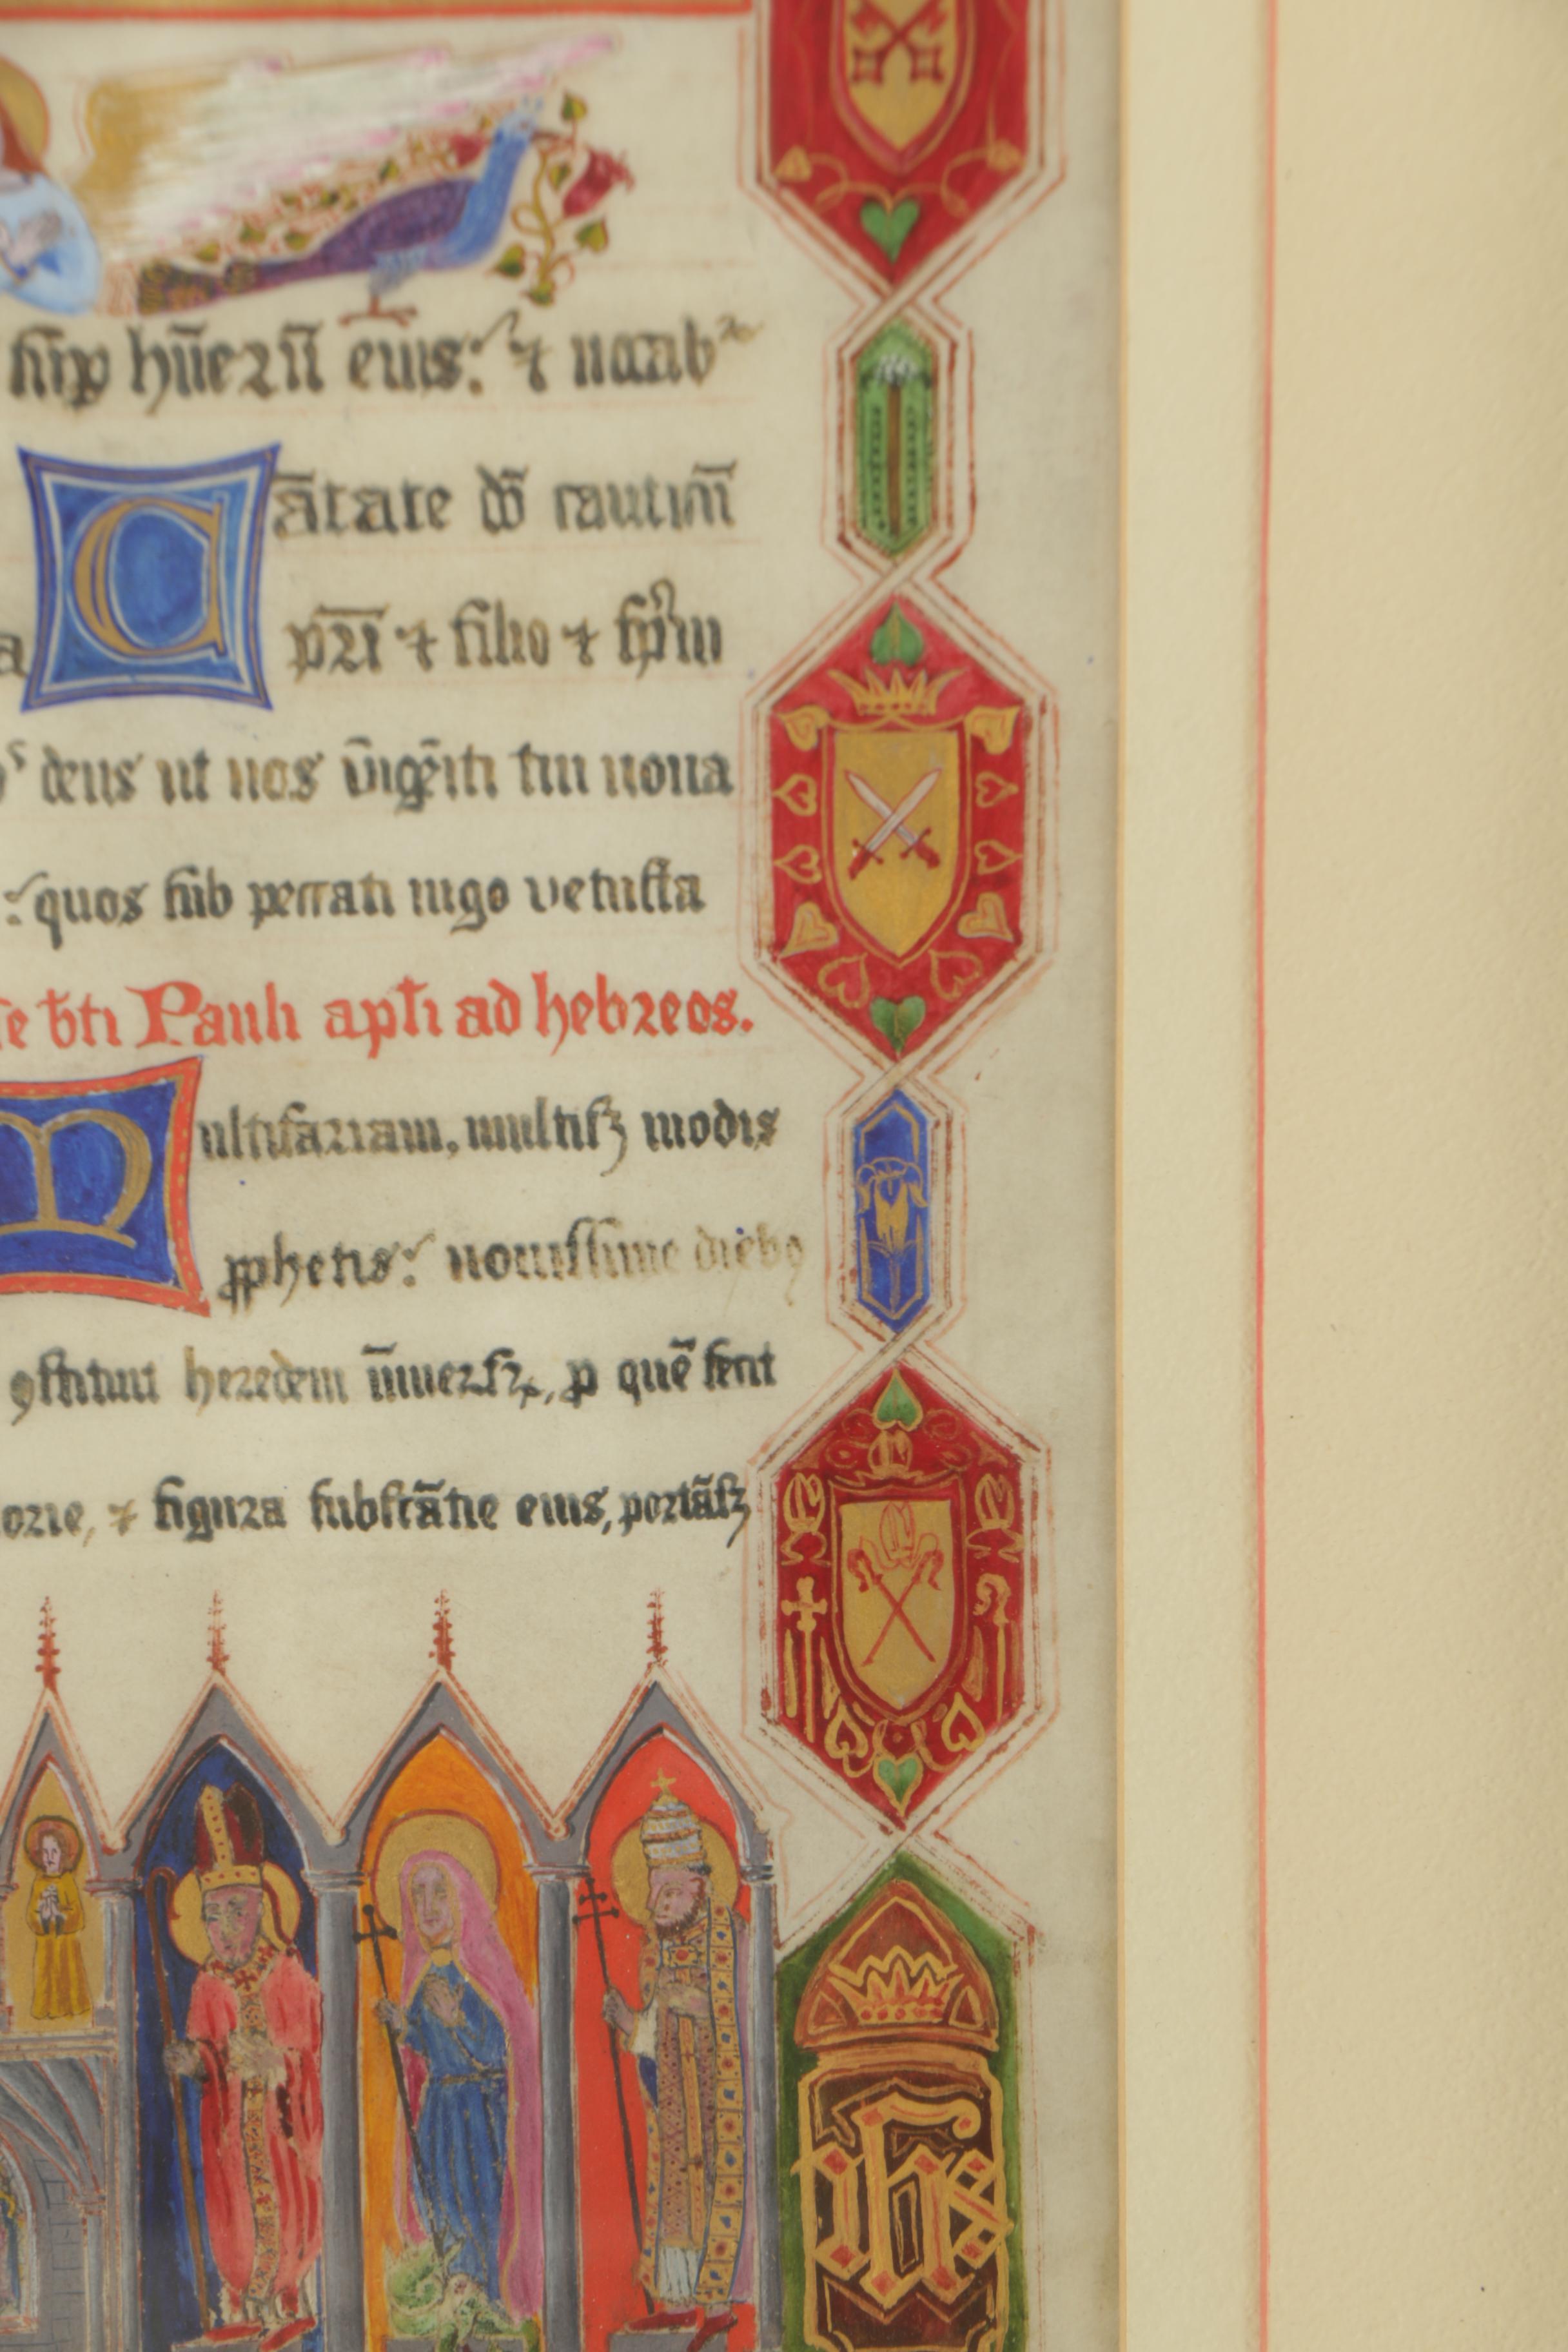 sup hūerū eius: ⁊ uocab
C ātate dō cauticū
a p̄ri ⁊ filio ⁊ sp̄ui
deus ut nos ūigēiti tui noua
: quos sub peccati iugo vetusta
bti Pauli apli ad hebreos.
Multifariam, multisqȝ modis
ꝓphetis: nouissime diebꝯ
ꝯstituit heredem ūniuersoꝝ, ꝑ quē fecit
orie, ⁊ figura substātie eius, portāsqȝ
ihs